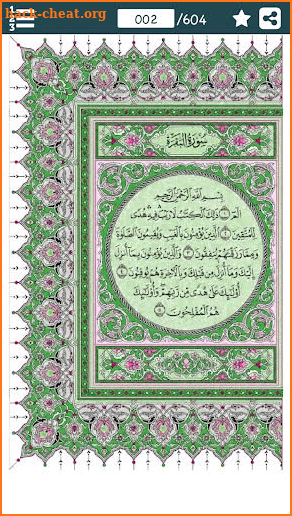 hack-cheat.org
1
2
3
002 /604
سورة البقرة
بِسْمِ اللَّهِ الرَّحْمَٰنِ الرَّحِيمِ
الٓمٓ ١ ذَٰلِكَ الْكِتَٰبُ لَا رَيْبَ ۛ فِيهِ ۛ هُدًى
لِّلْمُتَّقِينَ ٢ الَّذِينَ يُؤْمِنُونَ بِالْغَيْبِ وَيُقِيمُونَ الصَّلَوٰةَ
وَمِمَّا رَزَقْنَٰهُمْ يُنفِقُونَ ٣ وَالَّذِينَ يُؤْمِنُونَ بِمَا أُنزِلَ
إِلَيْكَ وَمَا أُنزِلَ مِن قَبْلِكَ وَبِالْءَاخِرَةِ هُمْ يُوقِنُونَ ٤
أُولَٰئِكَ عَلَىٰ هُدًى مِّن رَّبِّهِمْ ۖ وَأُولَٰئِكَ
هُمُ الْمُفْلِحُونَ ٥